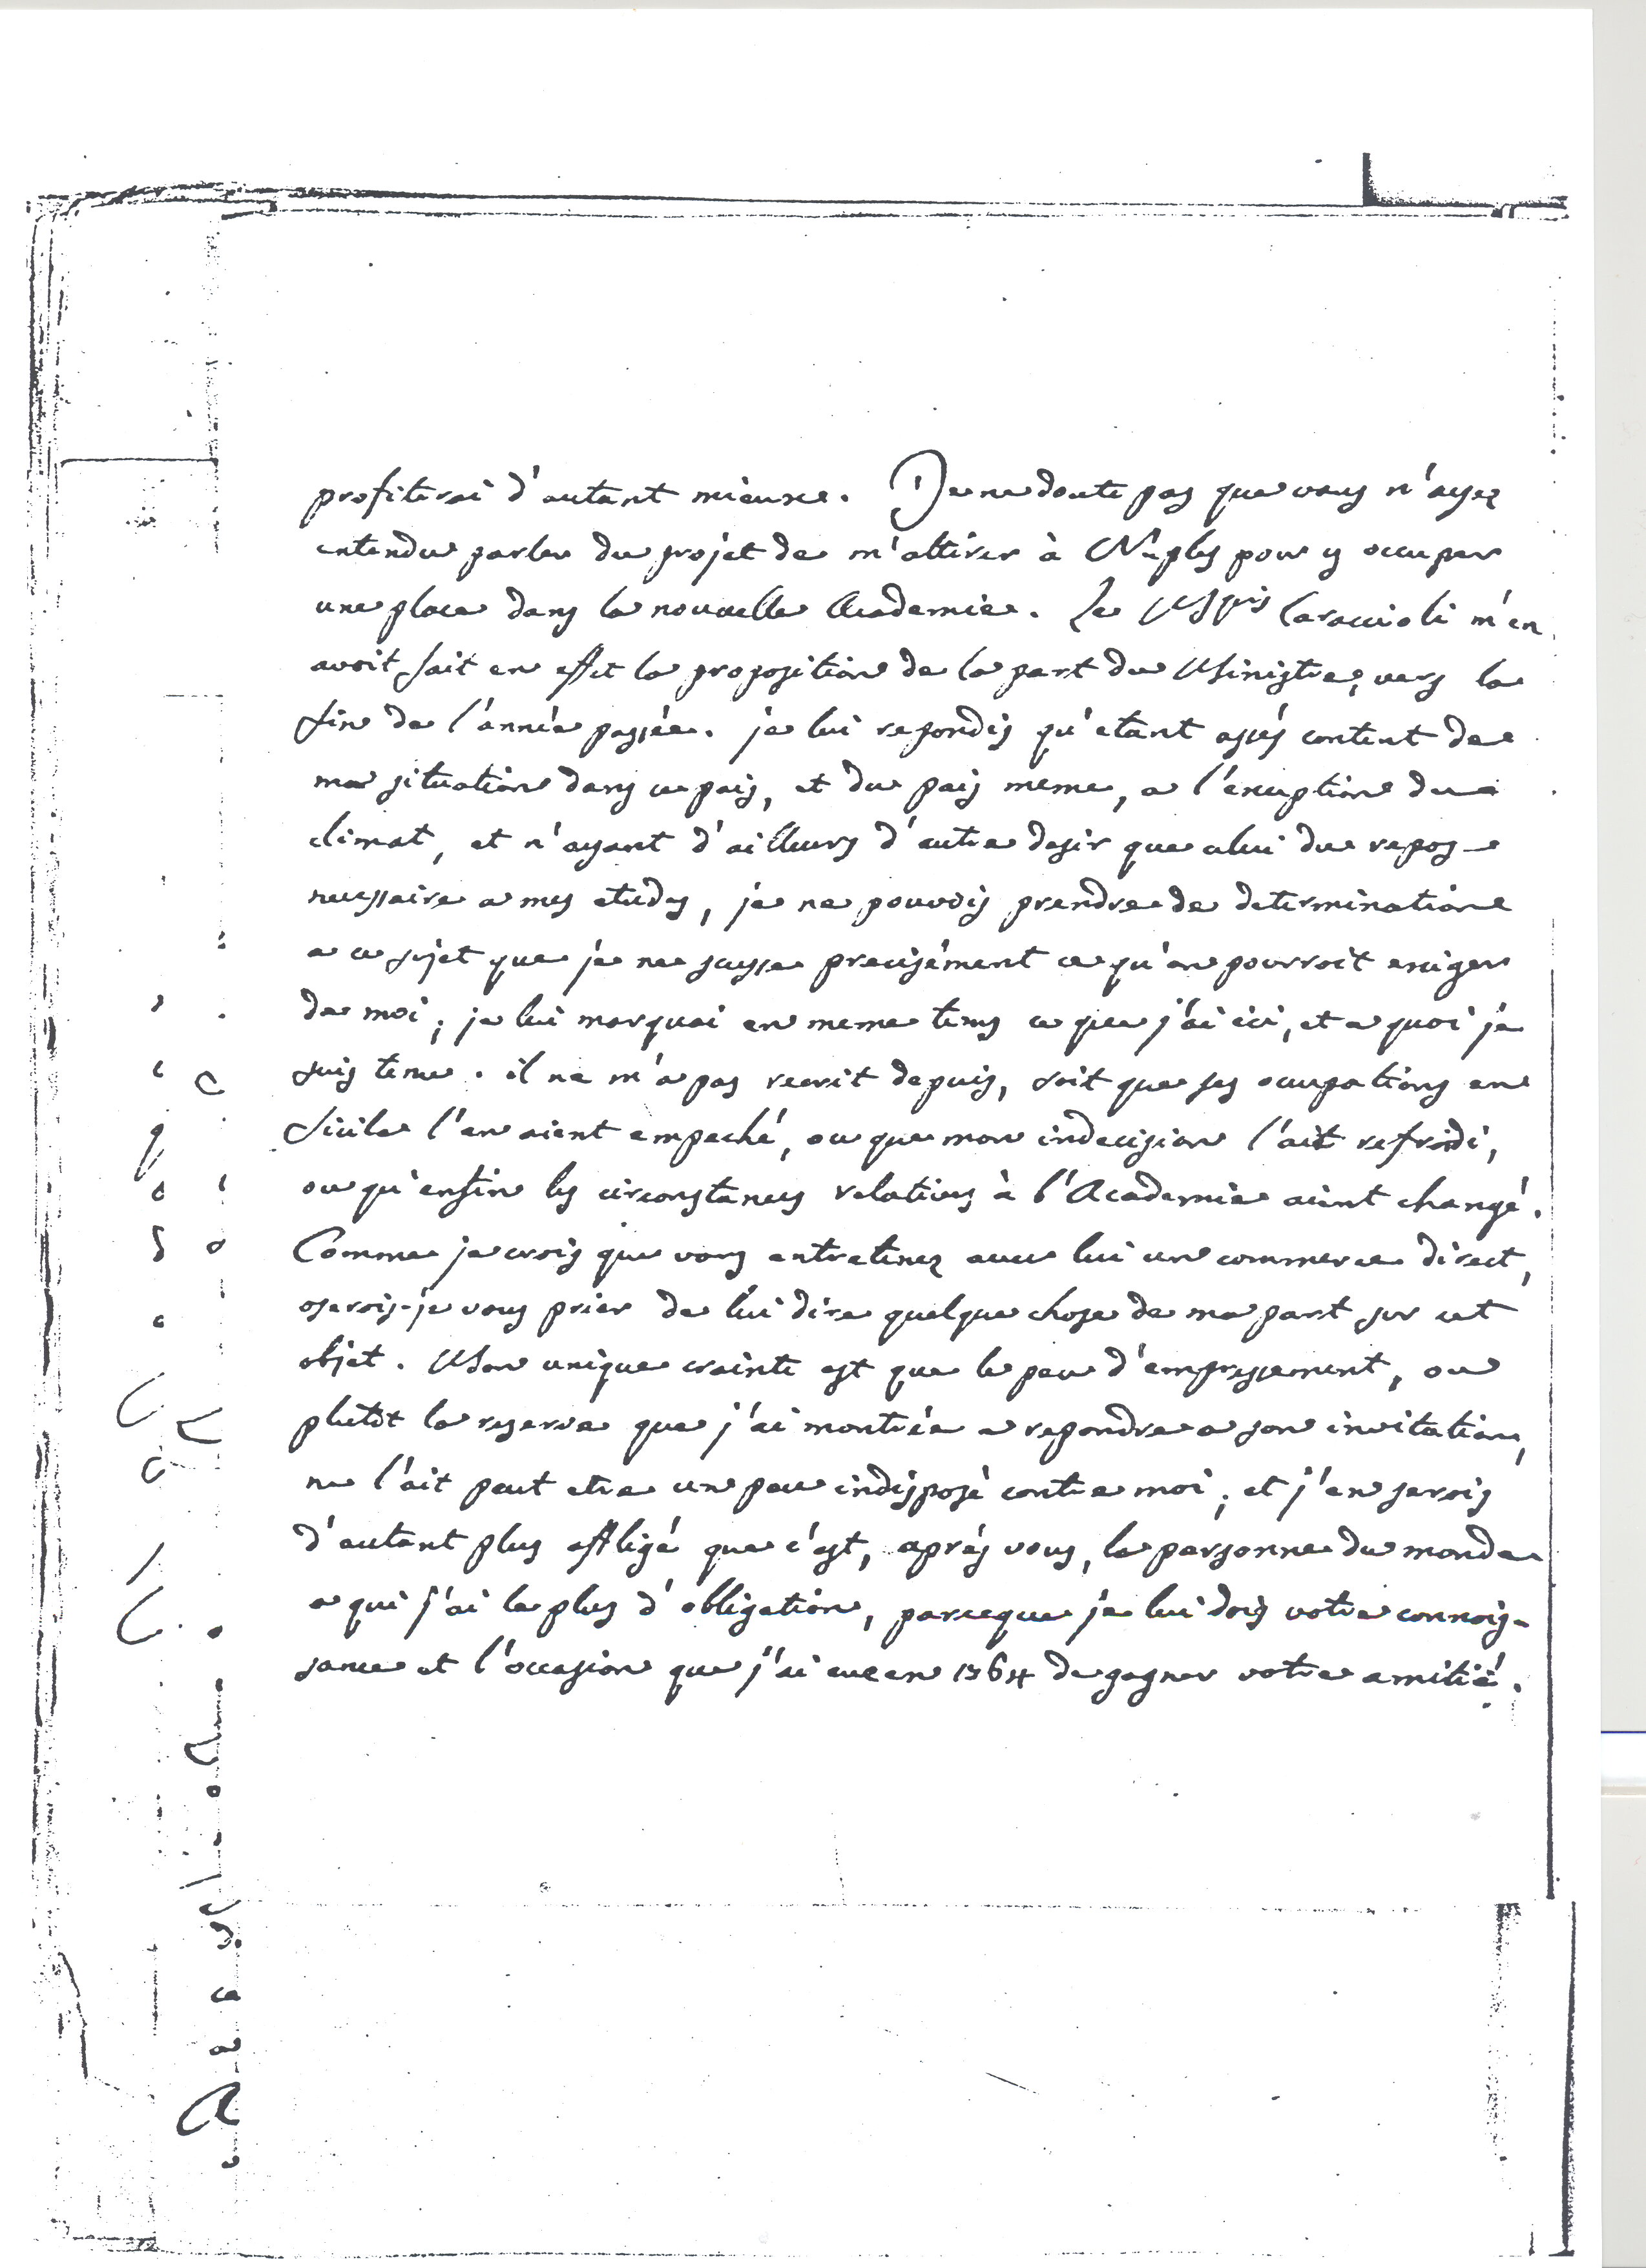 profiterai d'autant mieux. Je ne doute pas que vous n'ayez
entendu parler du projet de m'attirer à Naples pour y occuper
une place dans la nouvelle Academie. Le Mquis Caraccioli m'en
avoit fait en effet la proposition de la part du Ministre, vers la
fin de l'année passée. je lui repondis qu'etant assés content de
ma situation dans ce païs, et du païs meme, a l'exception du
climat, et n'ayant d'ailleurs d'autre desir que celui du repos
necessaire a mes etudes, je ne pouvois prendre de determination
a ce sujet que je ne susse precisément ce qu'on pourroit exiger
de moi; je lui marquai en meme tems ce que j'ai ici, et a quoi je
suis tenu. il ne m'a pas recrit depuis, soit que ses occupations en
Sicile l'en aient empeché, ou que mon indecision l'ait refroidi,
ou qu'enfin les circonstances relatives à l'Academie aient changé.
Comme je crois que vous entretenez avec lui un commerce direct,
oserois-je vous prier de lui dire quelque chose de ma part sur cet
objet. Mon unique crainte est que le peu d'empressement, ou
plutôt la reserve que j'ai montrée a repondre a son invitation,
ne l'ait peut etre un peu indisposé contre moi; et j'en serois
d'autant plus affligé que c'est, après vous, la personne du monde
a qui j'ai le plus d'obligation, parceque je lui dois votre connois-
sance et l'occasion que j'ai eue en 1764 de gagner votre amitié.